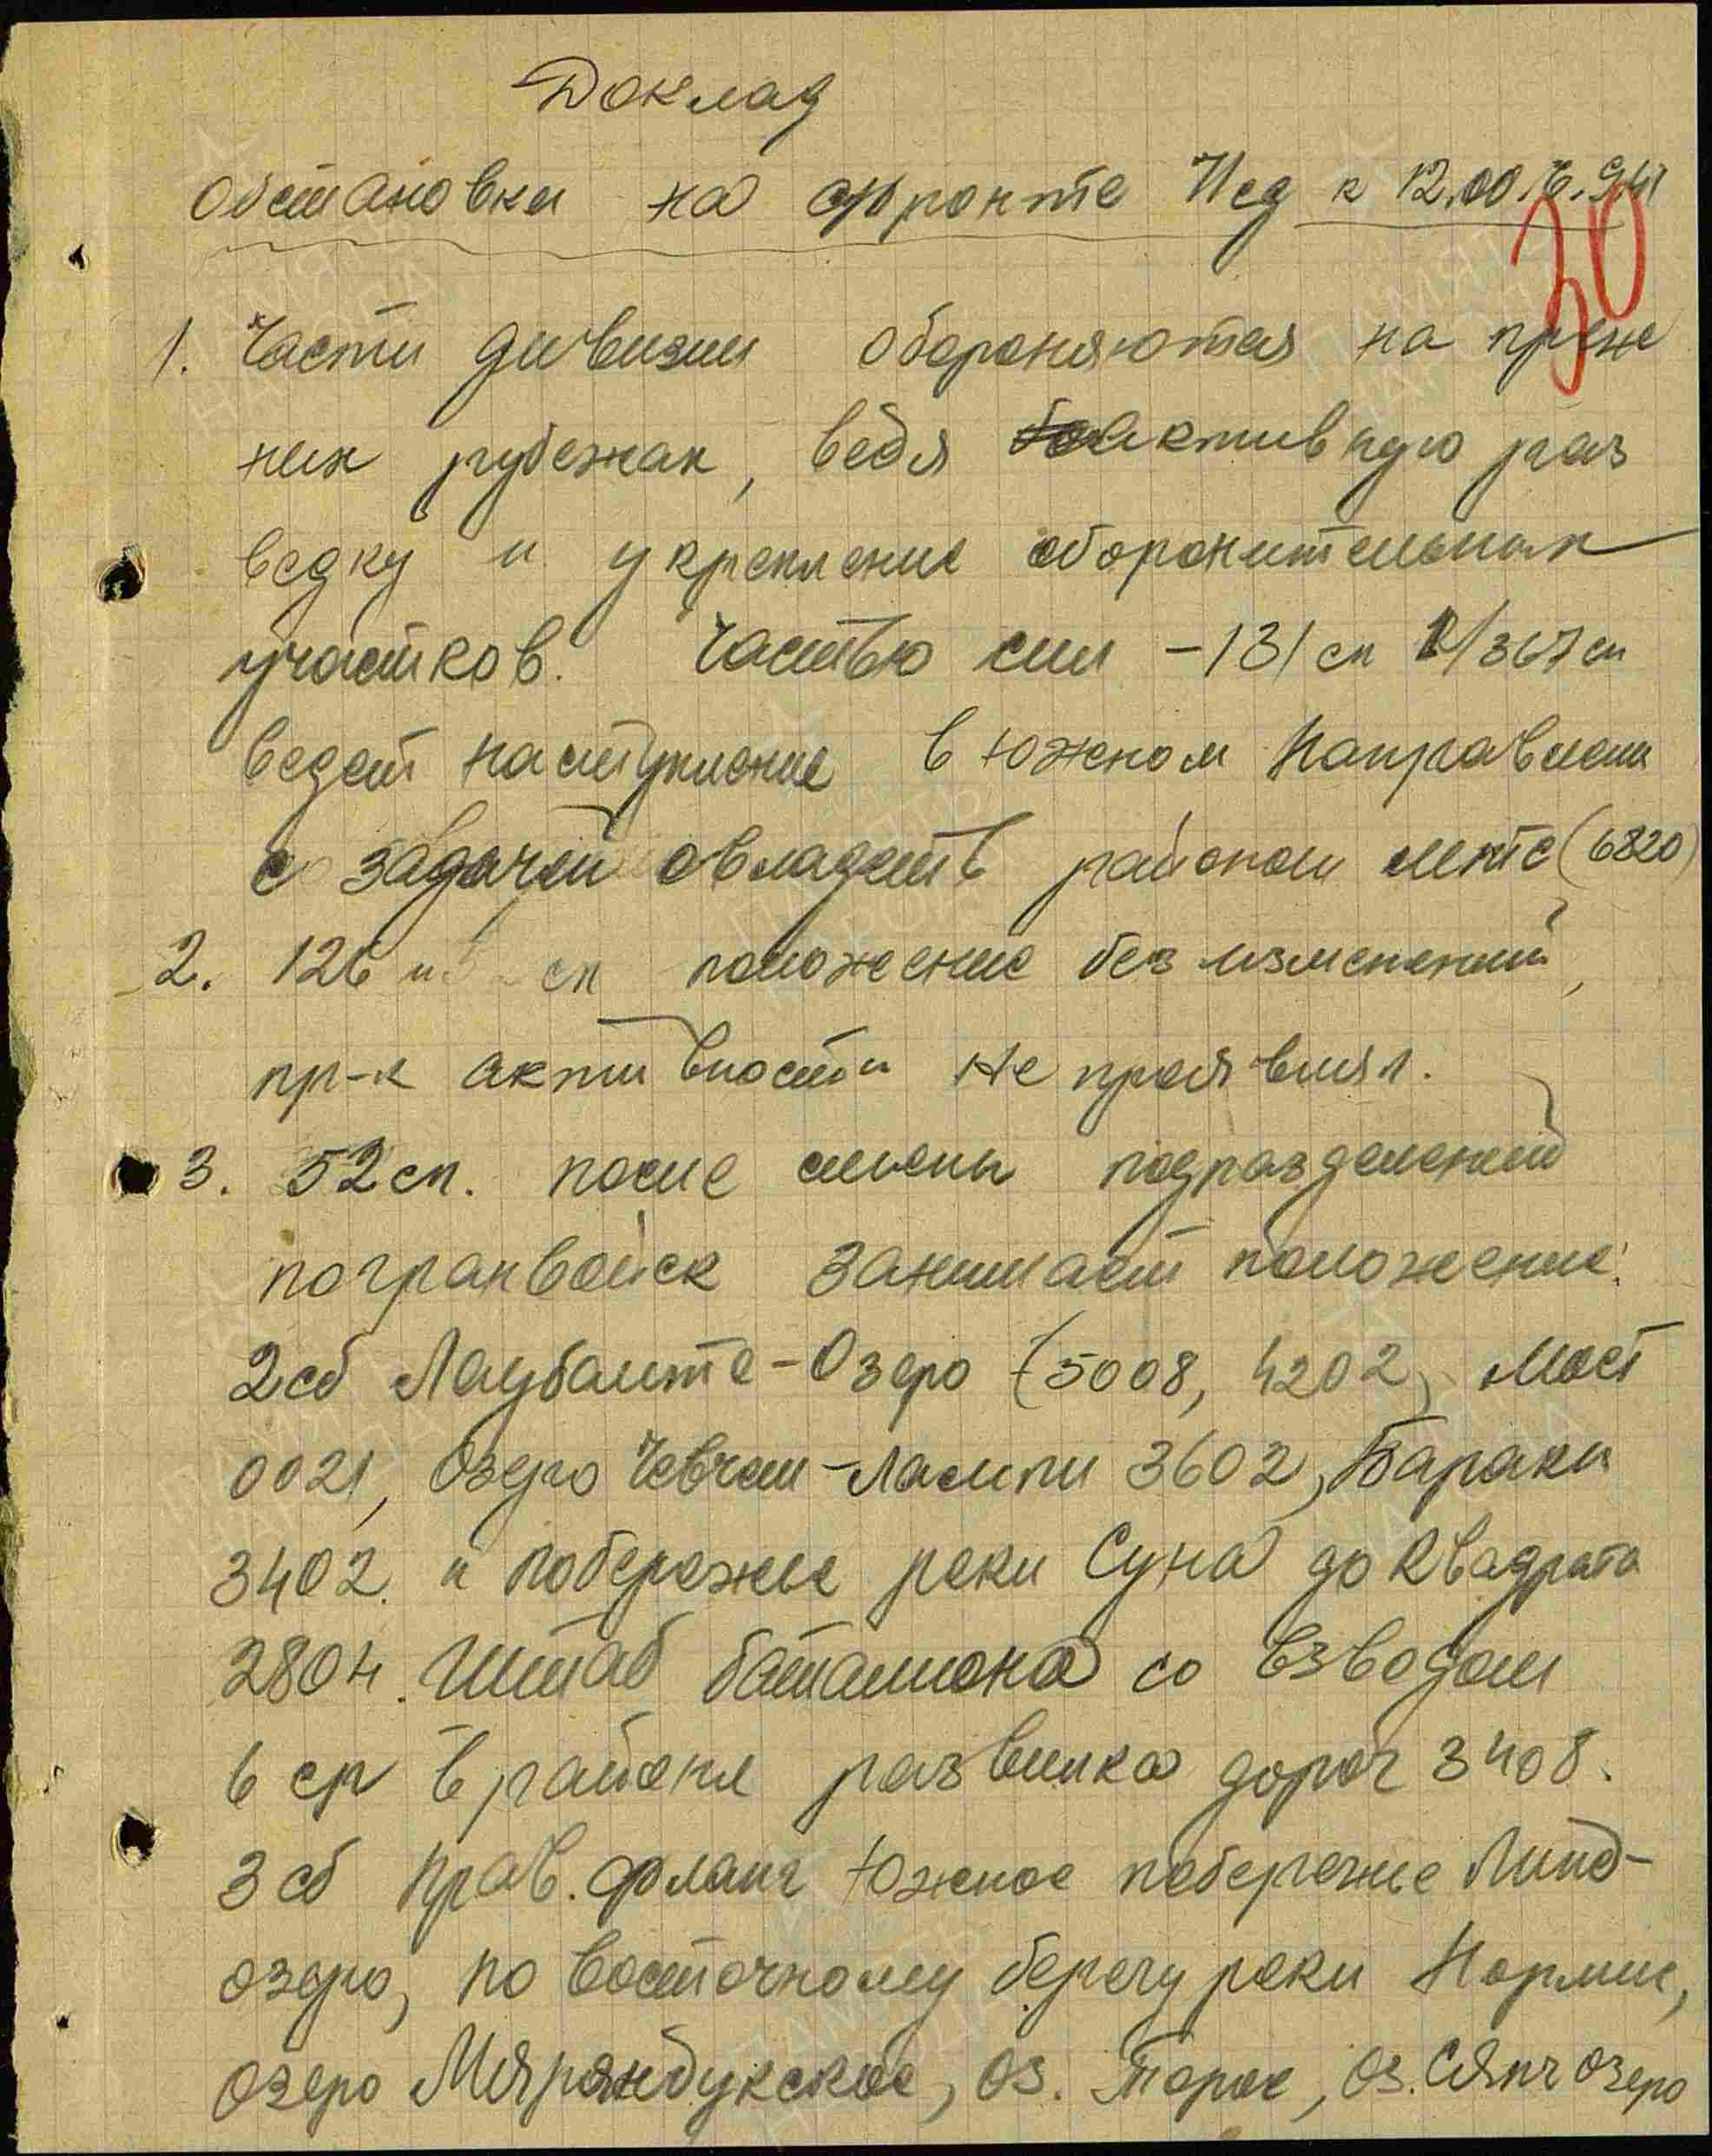 Доклад
обстановки на фронте 71сд к 12.00
30
1. Части дивизии обороняются на преж
них рубежах, ведя активную раз
ведку и укрепление оборонительных
участков. Частью сил - 131 сп /367 сп
ведет наступление в южном направлении
с задачей овладеть районом (6820)
2. 126 и сп положение без изменений,
пр-к активности не проявлял.
3. 52 сп. после смены подразделений
погранвойск занимает положение:
2 сб Лаубаште-Озеро (5008, 4202, мост
0021, Озеро -Лампи 3602, Бараки
3402. и побережье реки Суна до квадрата
2804. Штаб баталиона со взводом
6 ср в районе развилка дорог 3408.
3 сб прав. фланг Южное побережье Линд-
озеро, по восточному берегу реки
озеро Мярандукское, оз. Торос, оз. Сяпчозеро